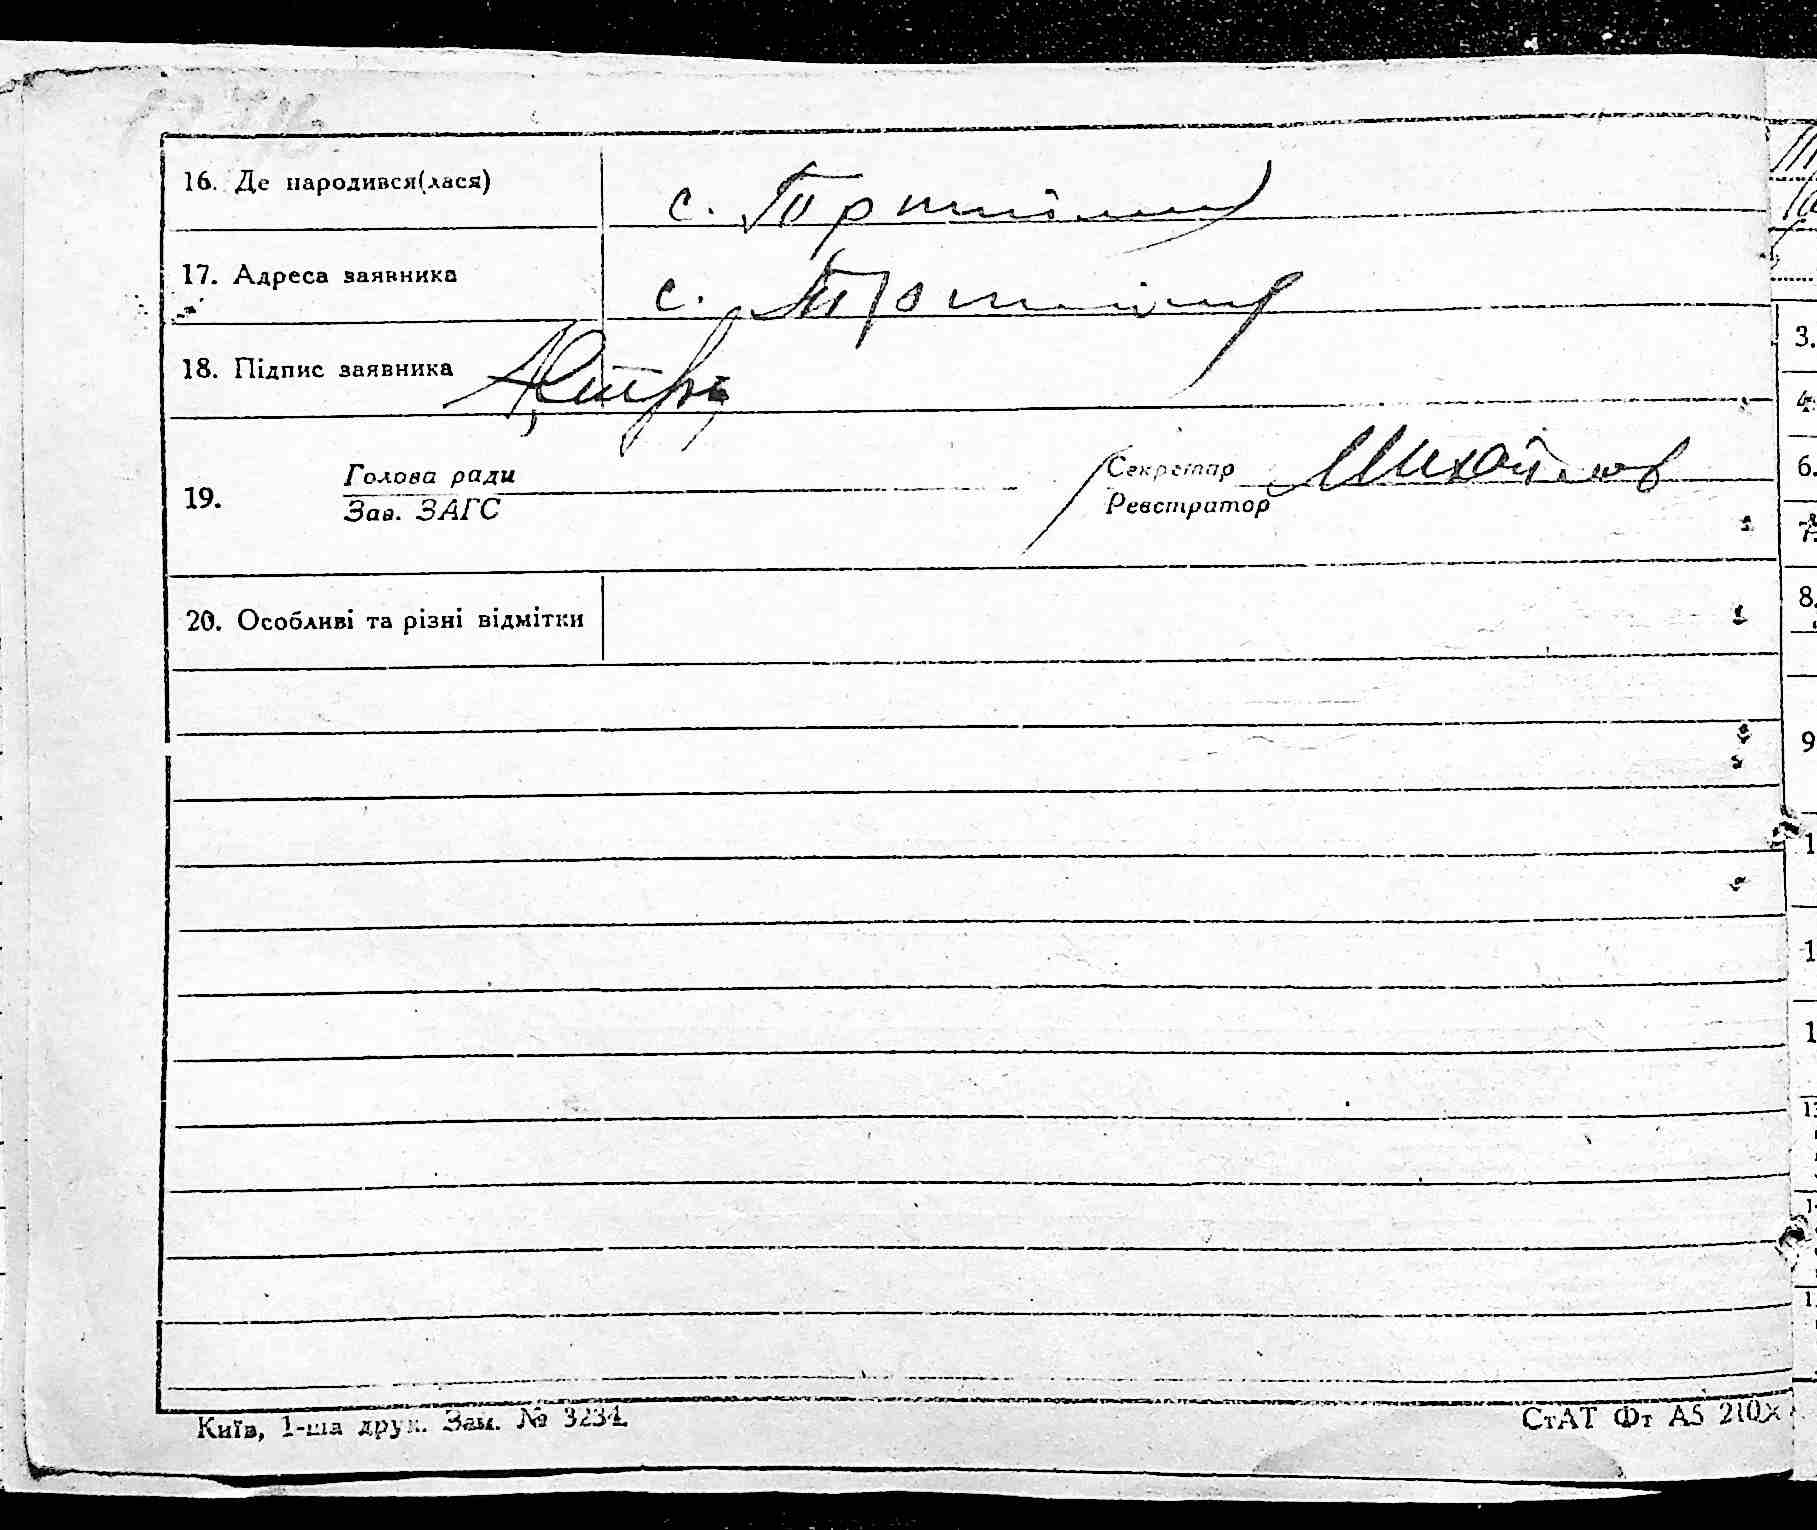 16. Де народився(лася) с.
17. Адреса заявника с.
18. Підпис заявника
19. Голова ради Секретар Михайлов
Зав. ЗАГС Реєстратор
20. Особливі та різні відмітки
3.
4.
6.
7.
8.
9
Київ, 1-ша друк. Зам. № 3234. СтАТ Фт А5 210×